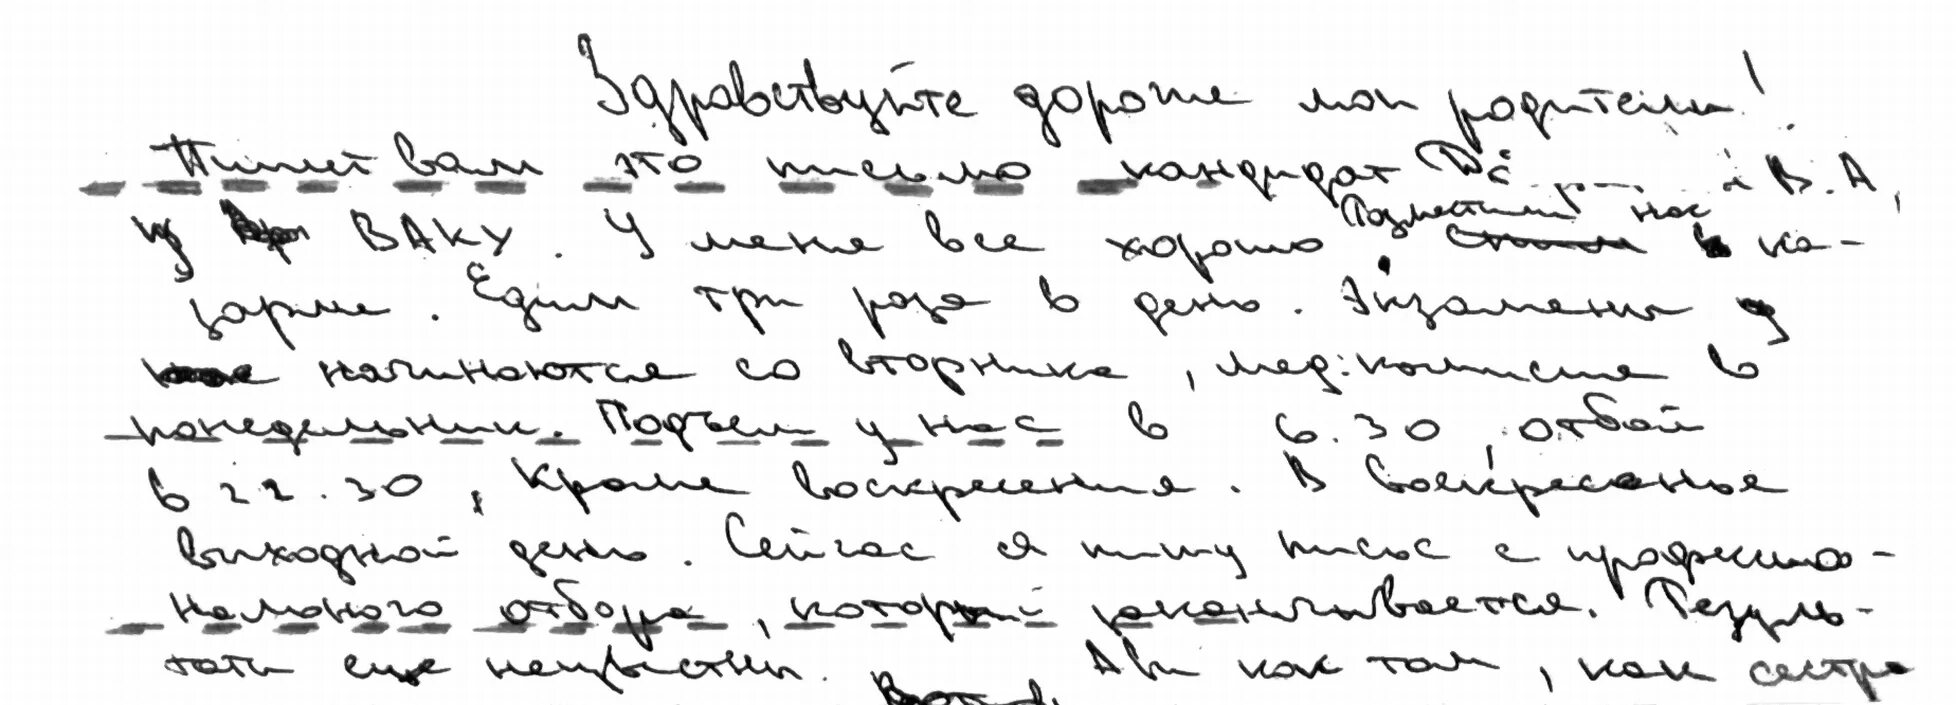 Здравствуйте дорогие мои родители!
Пишет вам это письмо кандидат В.А,
из ВАКУ. У меня все хорошо. Разместили нас в ка-
зарме. Едим три раза в день. Экзамены у
нас начинаются со вторника, мед.комиссия в
понедельник. Подъем у нас в 6.30, отбой
в 22.30, кроме воскресения. В Воскресенье
выходной день. Сейчас я пишу письмо с профессио-
нального отбора, который заканчивается. Резуль-
таты еще неизвестны. А вы как там, как сестра